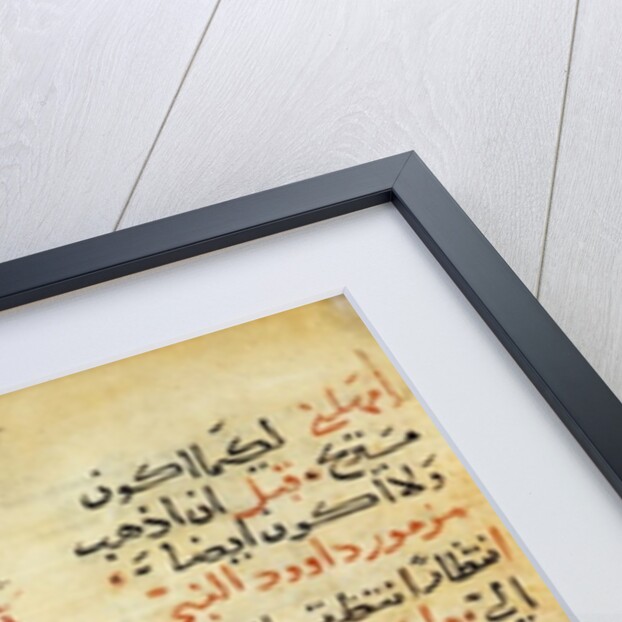 امهلني لكيما اكون
مستريح قبل ان اذهب
ولا اكون ايضا
مزمور داوود النبي
انتظارًا انتظرت
الي